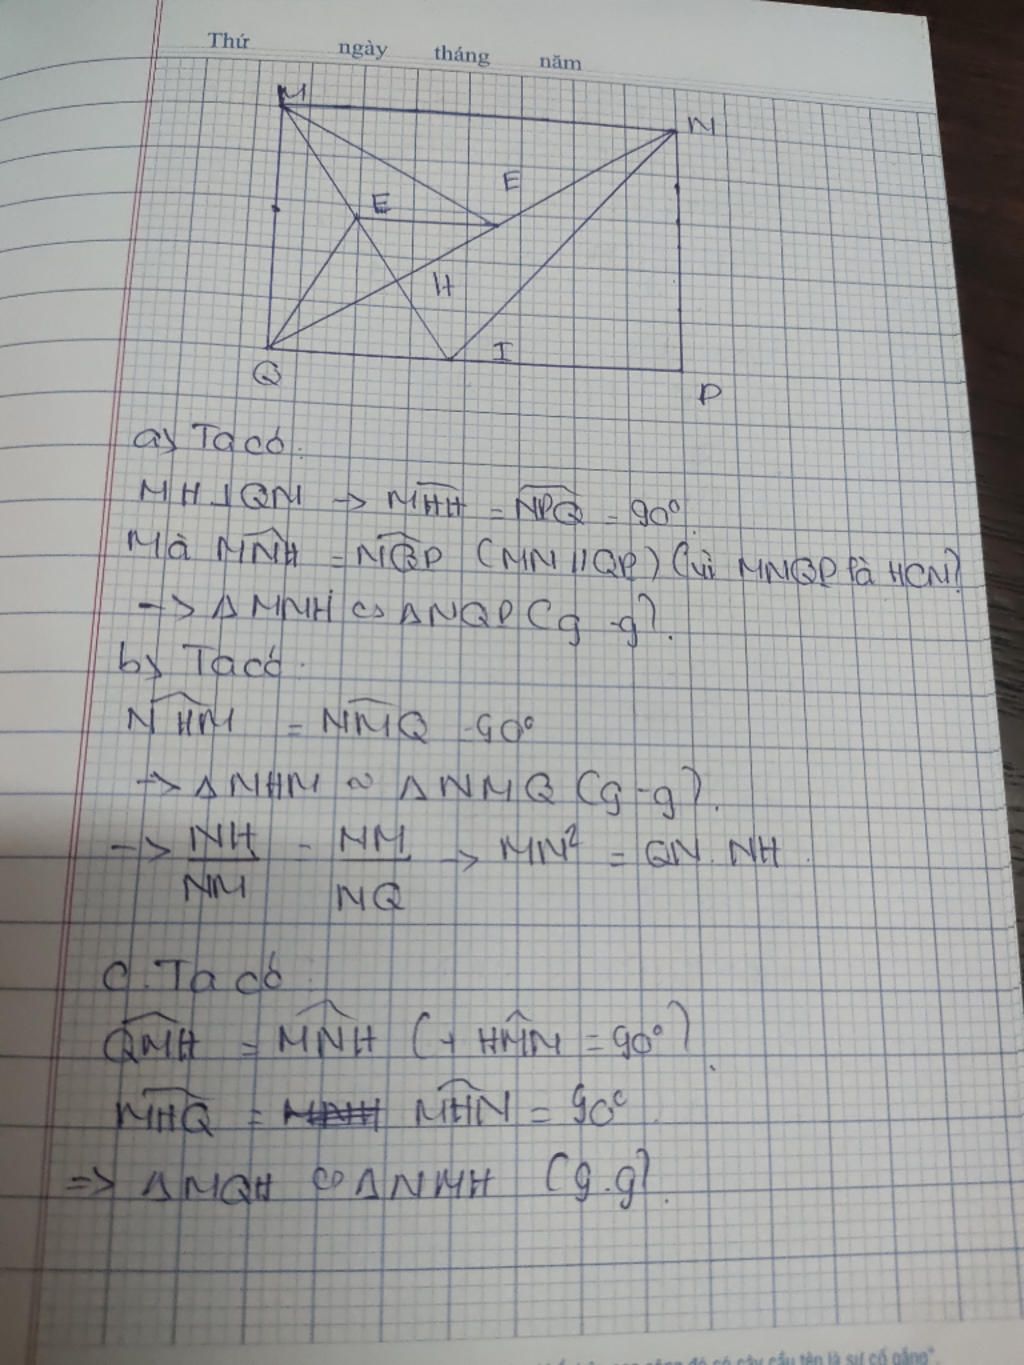 Thứ ngày tháng năm
M
N
E
E
H
I
Q
P
a) Ta có:
MH ⊥ QN → MHN = NPQ = 90°
Mà MNH = NQP (MN // QP) (vì MNQP là HCN)
→ Δ MNH ∽ Δ NQP (g-g).
b) Ta có:
NHM = NMQ = 90°
→ Δ NHM ~ Δ NMQ (g-g).
→ NH/NM = NM/NQ → MN² = QN. NH.
c. Ta có:
QMH = MNH (+ HMN = 90°).
MHQ = MHN = 90°.
=> Δ MQH ∽ Δ NMH (g.g).